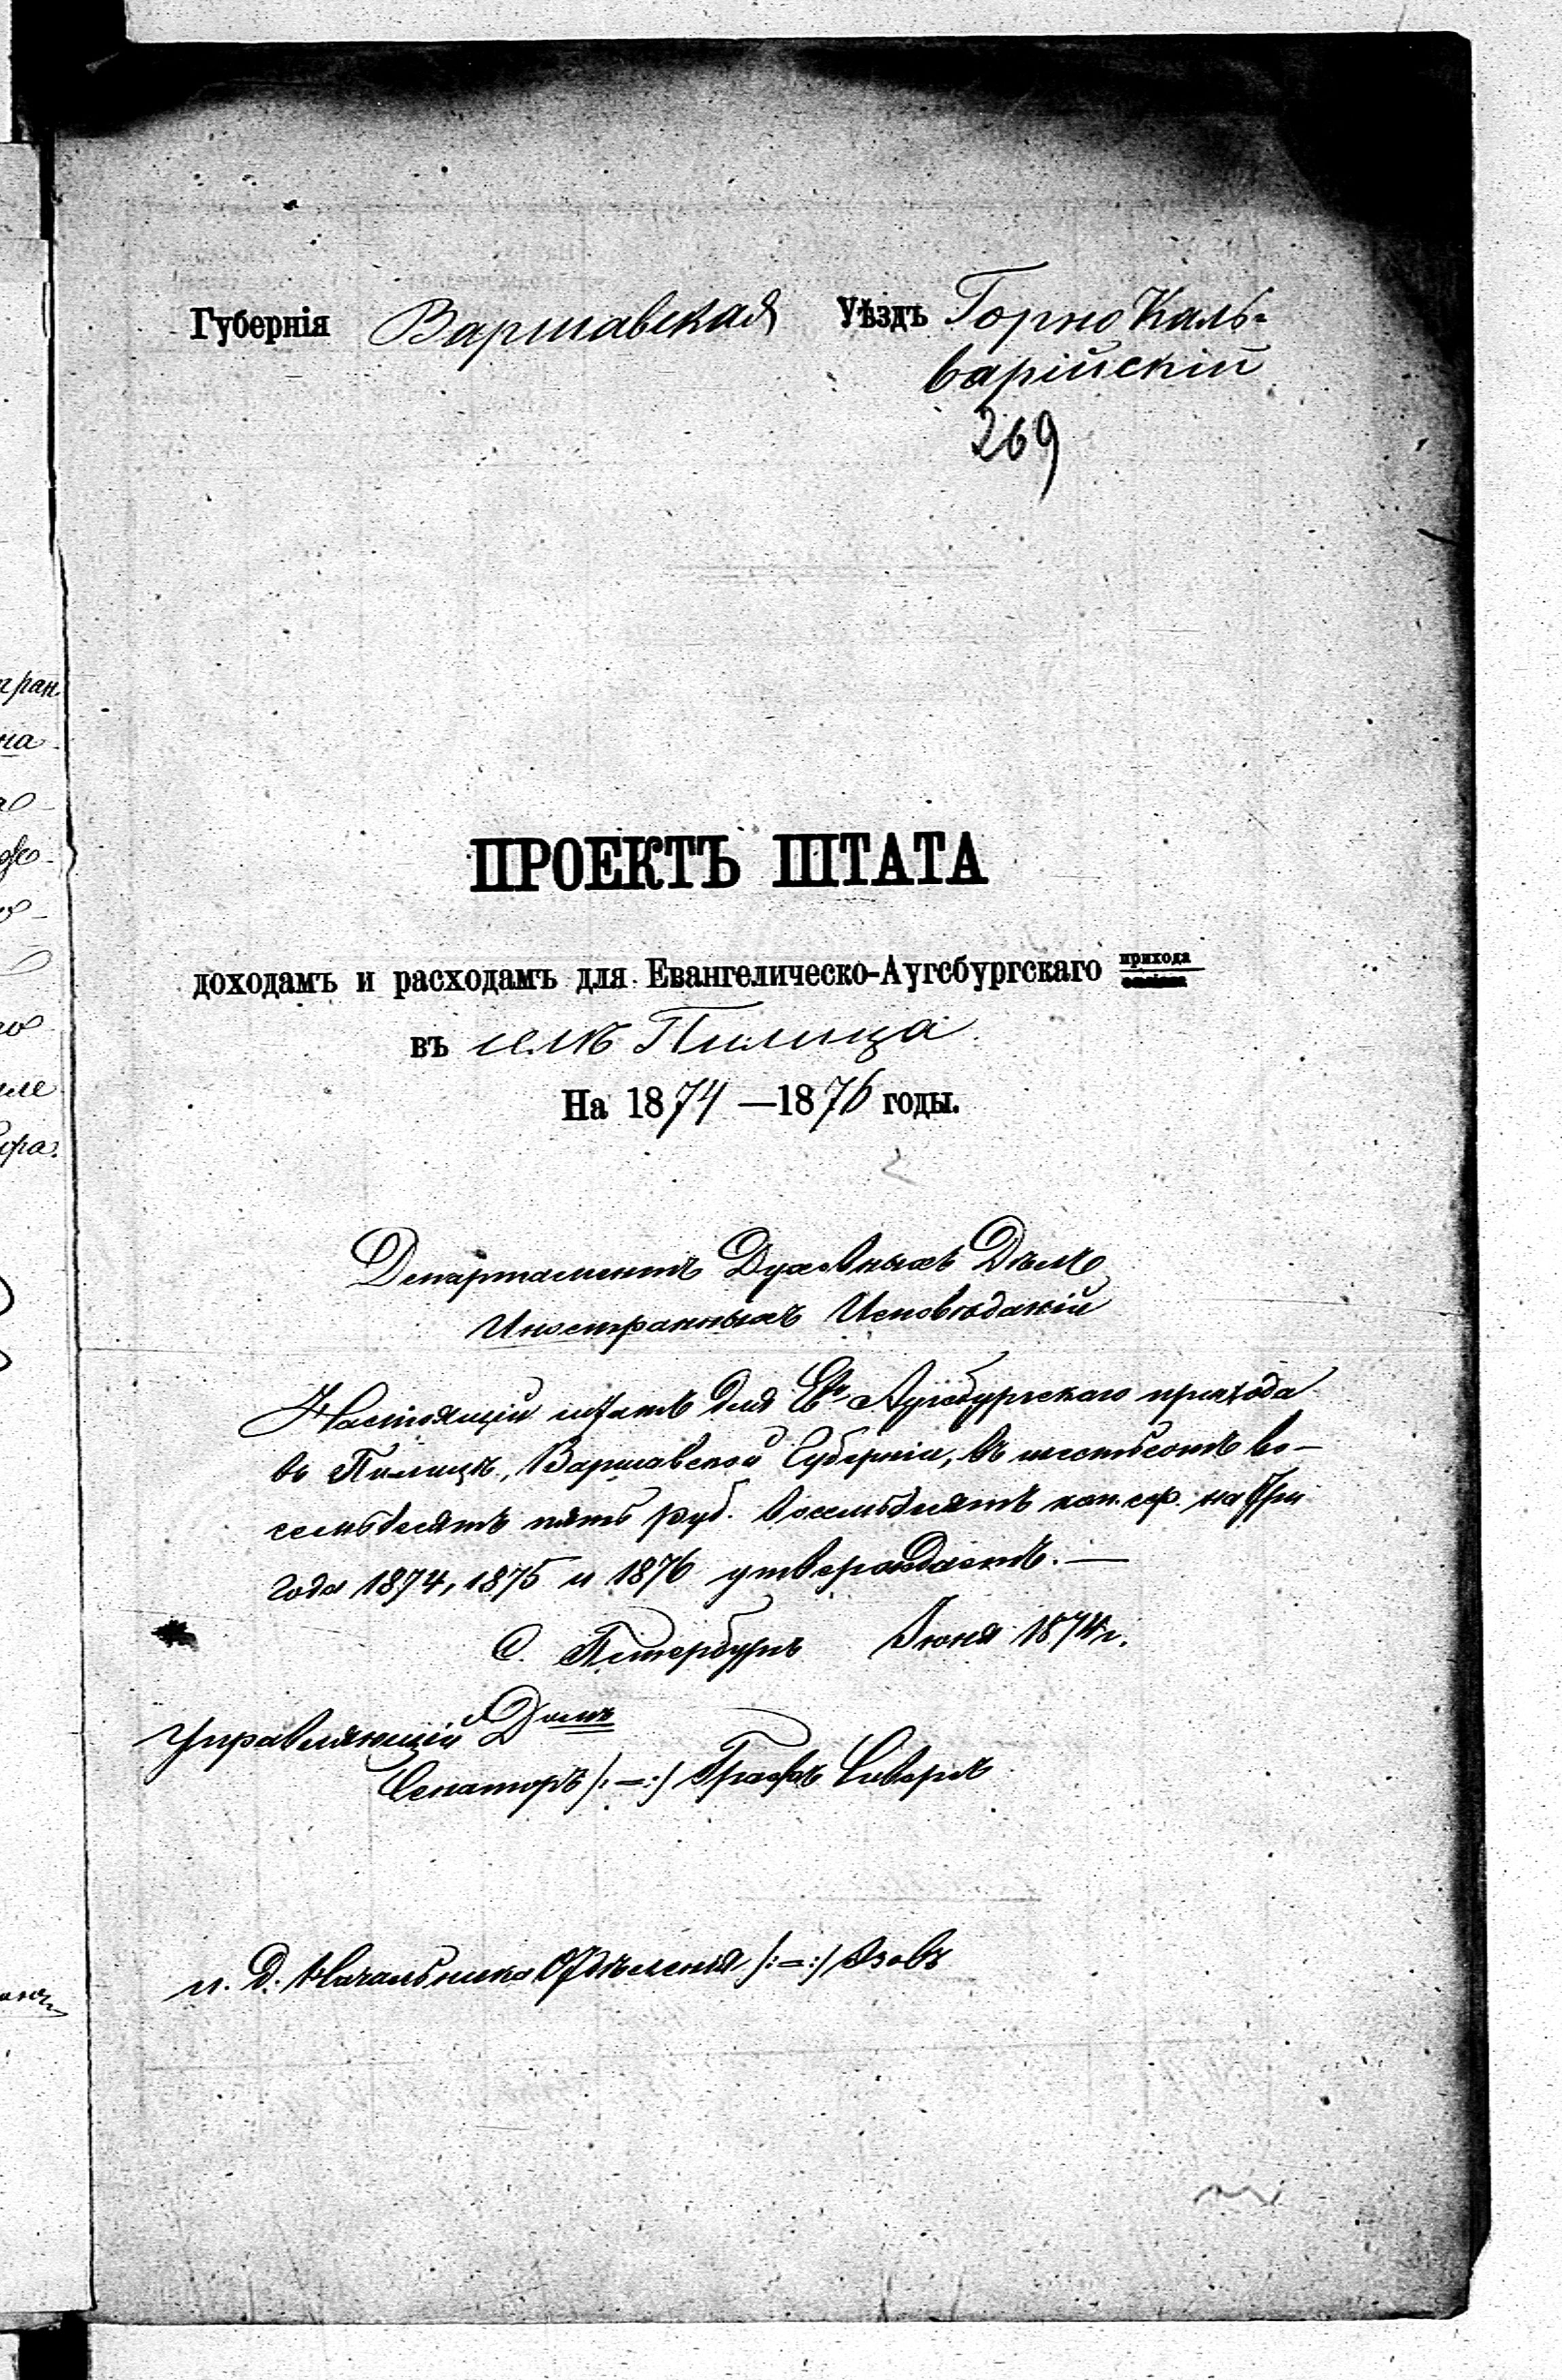 Губернія Варшавская Уѣздъ Горно Каль-
варійскій
269
ПРОЕКТЪ ШТАТА
доходамъ и расходамъ для Евангелическо-Аугсбургскаго прихода
въ Пилица
На 1874—1876 годы.
Департаментъ Духовныхъ Дѣлъ
Иностранныхъ Исповѣданій
Настоящій штатъ для Ев. Аугсбургскаго прихода
въ Пилицѣ, Варшавской Губерніи, въ шестьсотъ во-
семьдесятъ пять руб. восемьдесятъ коп. сер. на три
года 1874, 1875 и 1876 утверждаетъ.—
С. Петербургъ Іюня 1874 г.
Управляющій Домъ
Сенаторъ /:—:/ Графъ Сиверсъ
и. д. Начальника Отдѣленія /:—:/ Азовъ
гран
на
ю
иле
ора.